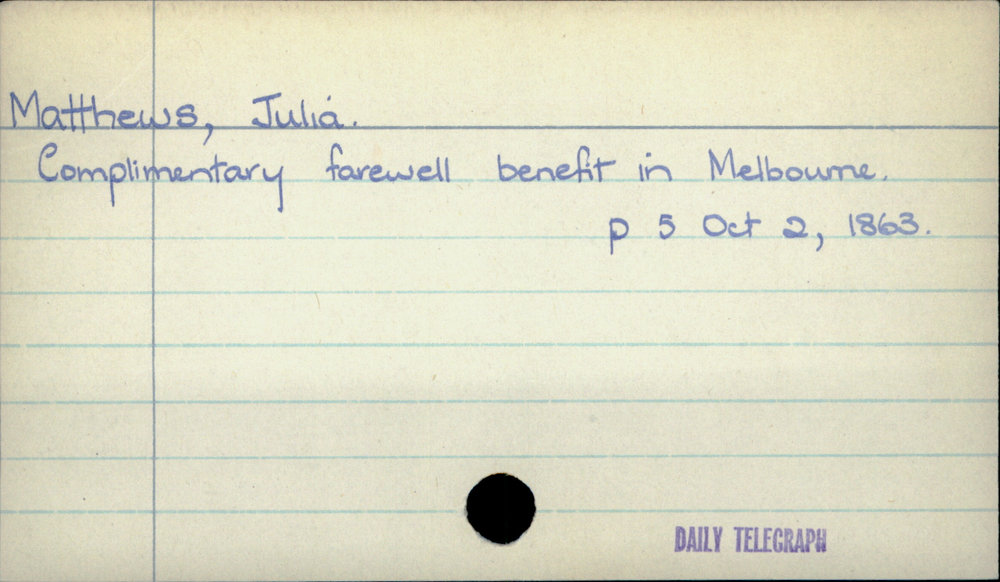 Matthews, Julia.
Complimentary farewell benefit in Melbourne.
p 5 Oct 2, 1863.
DAILY TELEGRAPH